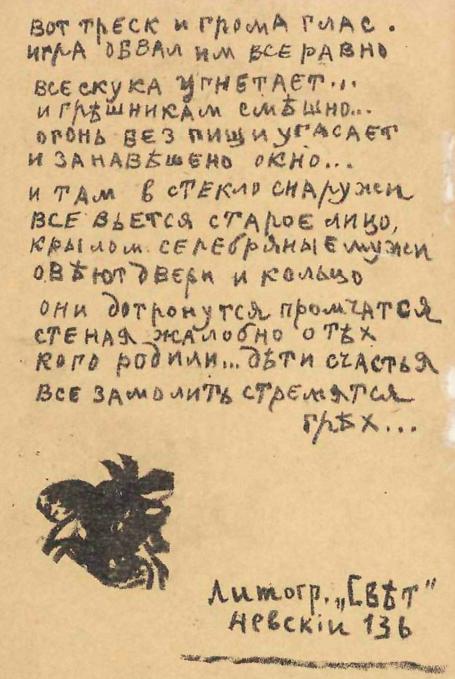 вот треск и грома глас.
игра обвал им все равно
все скука угнетает...
и грѣшникам смѣшно...
огонь без пищи угасает
и занавѣшено окно...
и там в стекло снаружи
все вьется старое лицо,
крылом серебряные мужи
овѣют двери и кольцо
они дотронутся промчатся
стеная жалобно о тѣх
кого родили... дѣти счастья
все замолить стремятся
грѣх...
литогр. „Свѣт"
невскіи 136